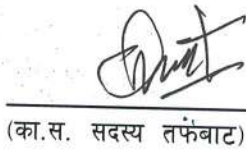 (का.स. सदस्य तर्फबाट)